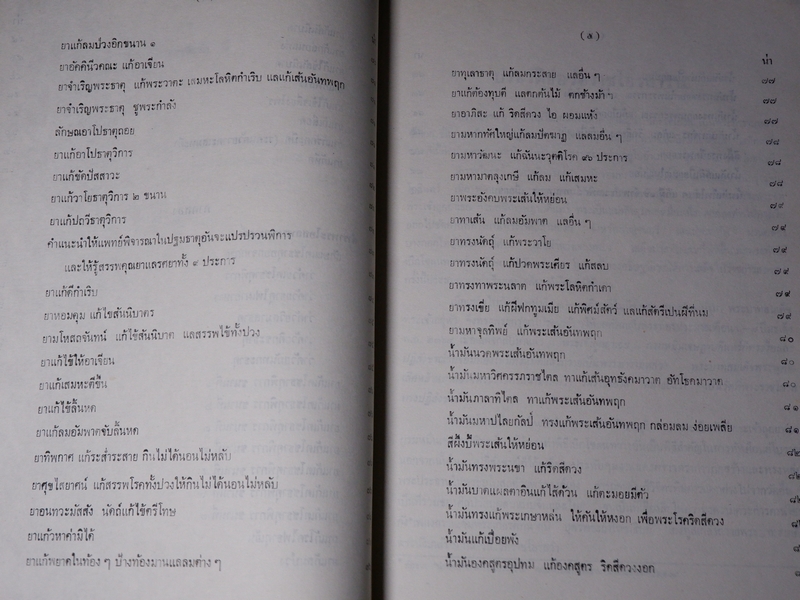 ยาแก้ลมป่วงอีกขนาน ๑
ยาอัคคินีวคณะ แก้อาเจียน
ยาจำเริญพระธาตุ แก้พระวาตะ เสมหะโลหิตกำเริบ แลแก้เส้นอันทพฤก
ยาจำเริญพระธาตุ ชูพระกำลัง
ลักษณอาโปธาตุถอย
ยาแก้อาโปธาตุวิการ
ยาแก้ขัดปัสสาวะ
ยาแก้วาโยธาตุวิการ ๒ ขนาน
ยาแก้ปถวีธาตุวิการ
คำแนะนำให้แพทย์พิจารณาในปฐมธาตุอันจะแปรปรวนพิการ
และให้รู้สรรพคุณยาแลรศยาทั้ง ๙ ประการ
ยาแก้ดีกำเริบ
ยาหอมดุม แก้ไข้สันนิบาตร
ยามโหสถจันทน์ แก้ไข้สันนิบาต แลสรรพไข้ทั้งปวง
ยาแก้ไข้ให้อาเจียน
ยาแก้เสมหะตีขึ้น
ยาแก้ไข้ลิ้นหด
ยาแก้ลมอัมพาตขับลิ้นหด
ยาทิพกาศ แก้ระส่ำระสาย กินไม่ได้นอนไม่หลับ
ยาศุขไสยาศน์ แก้สรรพโรคทั้งปวงให้กินไม่ได้นอนไม่หลับ
ยาอนทวะมัสสัง นัตถ์แก้ไข้ตรีโทษ
ยาแก้วหาค่ามิได้
ยาแก้พยาตในท้อง ๆ ป้างท้องมานแลลมต่าง ๆ
(๕)
น่า
ยาทุเลาธาตุ แก้ลมกระสาย แลอื่น ๆ ๗๗
ยาแก้ต้องทุบตี แลตกต้นไม้ ตกช้างม้า ฯ ๗๗
ยาอาภิสะ แก้ ริดสีดวง ไอ ผอมแห้ง ๗๗
ยามหากทัศใหญ่แก้ลมปัตฆาฏ แลลมอื่น ๆ ๗๘
ยามหาวัฒนะ แก้ฉันนะวุตติโรค ๙๖ ประการ ๗๘
ยามหามาตลุงเกษี แก้ลม แก้เสมหะ ๗๘
ยาพระอังคบพระเส้นให้หย่อน ๗๙
ยาทาเส้น แก้ลมอัมพาต แลอื่น ๆ ๗๙
ยาทรงนัตถุ์ แก้พระวาโย ๗๙
ยาทรงนัตถุ์ แก้ปวดพระเศียร แก้สลบ ๗๙
ยาทรงทาพระนลาต แก้พระโลหิตกำเดา ๗๙
ยาทรงเขี่ย แก้ฝีกทูมเมีย แก้พิศม์สัตว์ แลแก้สัตรีเปนฝีที่นม ๗๙
ยามหาจุลทิพย์ แก้พระเส้นอันทพฤก ๘๐
น้ำมันนวดพระเส้นอันทพฤก ๘๐
น้ำมันมหาวิศครรภราชไตล ทาแก้เส้นอุทธังคมาวาต อัทโธคมาวาต ๘๐
น้ำมันภาลาทิไตล ทาแก้พระเส้นอันทพฤก ๘๑
น้ำมันมหาปไลยกัลป์ ทรงแก้พระเส้นอันทพฤก กล่อมลม ง่อยเพลีย ๘๑
สีผึ้งบี้พระเส้นให้หย่อน ๘๒
น้ำมันทรงพระนขา แก้ริดสีดวง ๘๒
น้ำมันบาดแผลตาอินแก้ไส้ด้วน แก้ตะมอยมีตัว
น้ำมันทรงแก้พระเกษาหล่น ให้คันให้หงอก เพื่อพระโรคริดสีดวง
น้ำมันแก้เปื่อยพัง
น้ำมันองคสูตรอุปทม แก้องคสูตร ริดสีดวงงอก